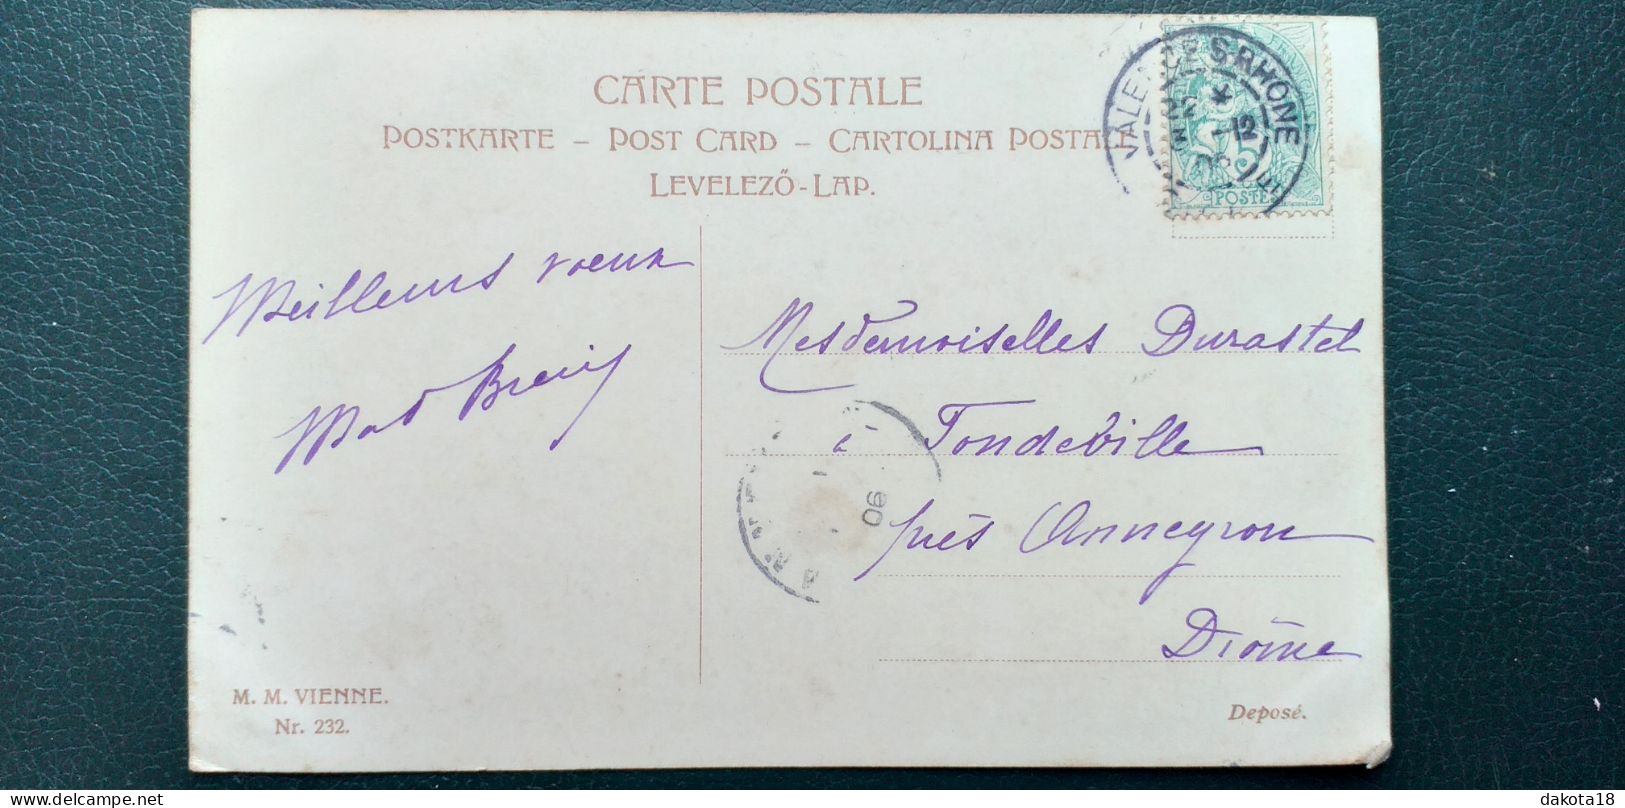 CARTE POSTALE
POSTKARTE – POST CARD – CARTOLINA POSTALE
LEVELEZŐ-LAP.
VALENCE S-RHONE
5
POSTES
Meilleurs vœux
Mesdemoiselles Durastel
à Tondeville
près Anneyron
Drôme
06
M. M. VIENNE.
Nr. 232.
Deposé.
dakota18